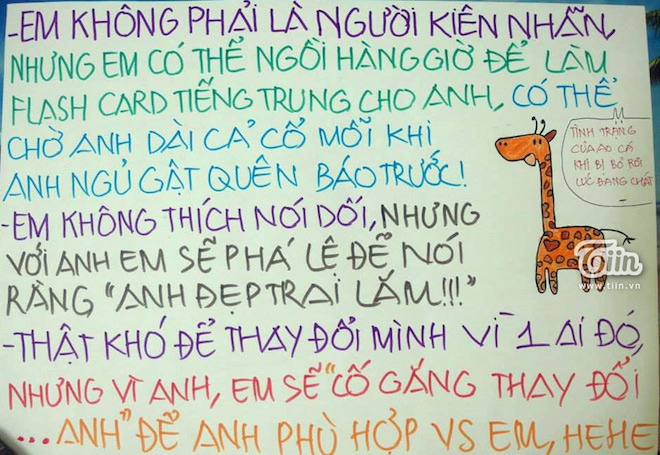 -EM KHÔNG PHẢI LÀ NGƯỜI KIÊN NHẪN,
NHƯNG EM CÓ THỂ NGỒI HÀNG GIỜ ĐỂ LÀM
FLASH CARD TIẾNG TRUNG CHO ANH, CÓ THỂ
CHỜ ANH DÀI CẢ CỔ MỖI KHI
ANH NGỦ GẬT QUÊN BÁO TRƯỚC!
TÌNH TRẠNG
CỦA AO CÁ
KHI BỊ BỎ RƠI
LÚC ĐANG CHÁT
-EM KHÔNG THÍCH NÓI DỐI, NHƯNG
VỚI ANH EM SẼ PHÁ LỆ ĐỂ NÓI
RẰNG "ANH ĐẸP TRAI LẮM!!!"
Tiin
www.tiin.vn
-THẬT KHÓ ĐỂ THAY ĐỔI MÌNH VÌ 1 AI ĐÓ,
NHƯNG VÌ ANH, EM SẼ "CỐ GẮNG THAY ĐỔI
...ANH" ĐỂ ANH PHÙ HỢP VS EM, HEHE